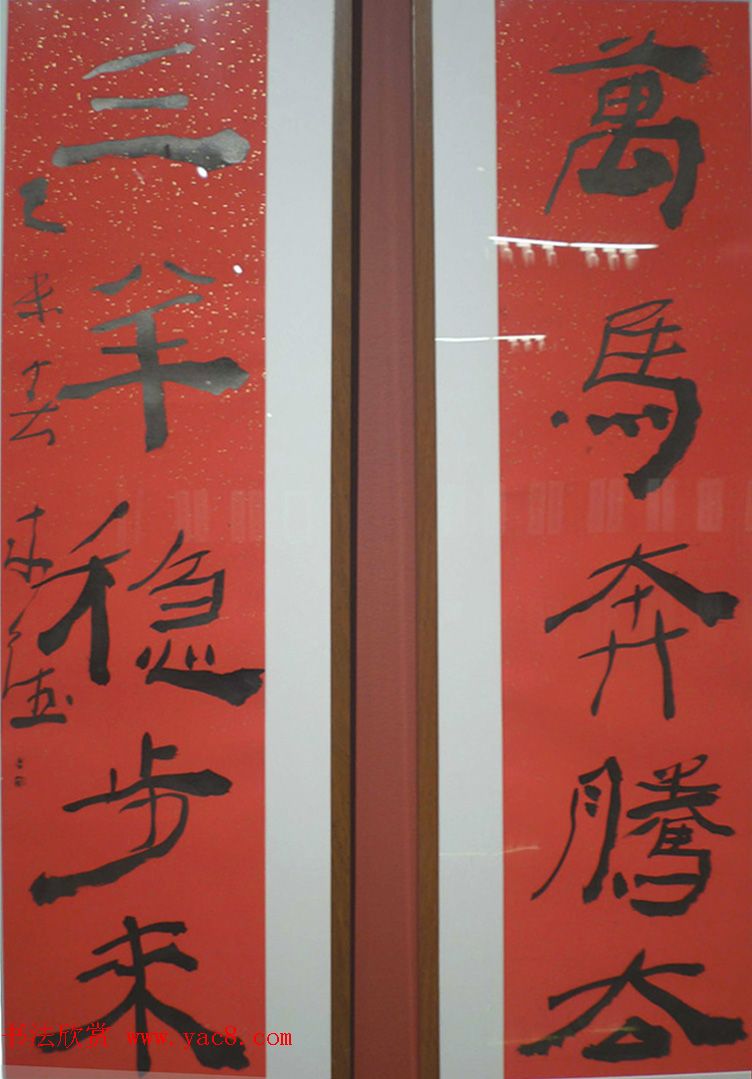 萬馬奔騰去
三羊稳步来
乙未
书法欣赏 www.yac8.com